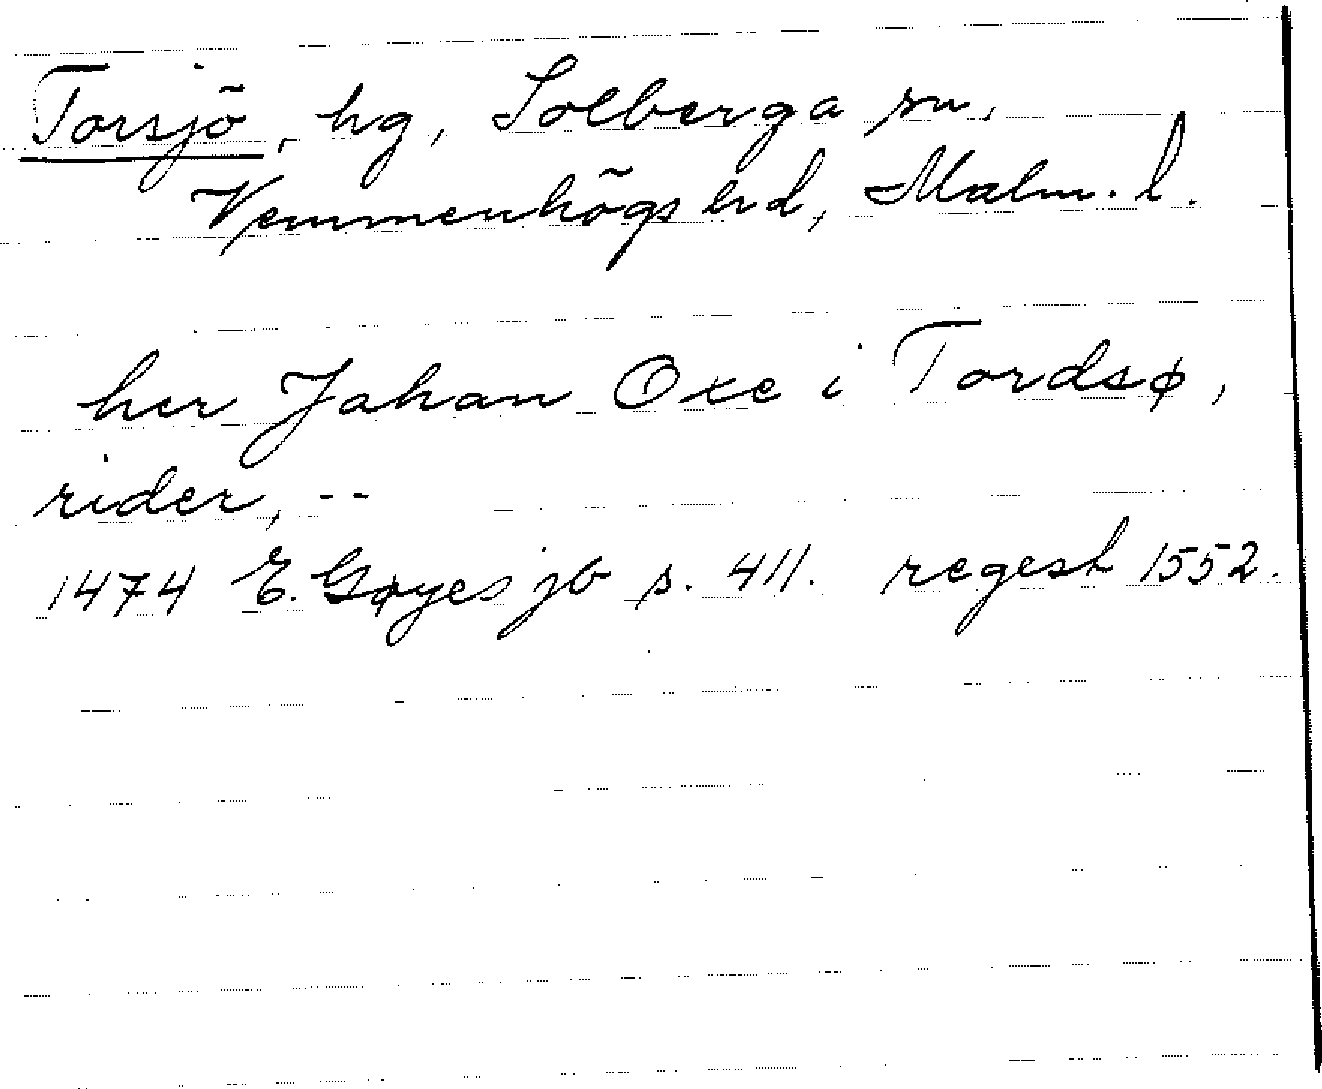 Torsjö, hg, Solberga sn,
Vemmenhögs hd, Malm. l.
her Jahan Oxe i Tordsø,
rider, --
1474 E. Gøyes jb s. 411. regest 1552.